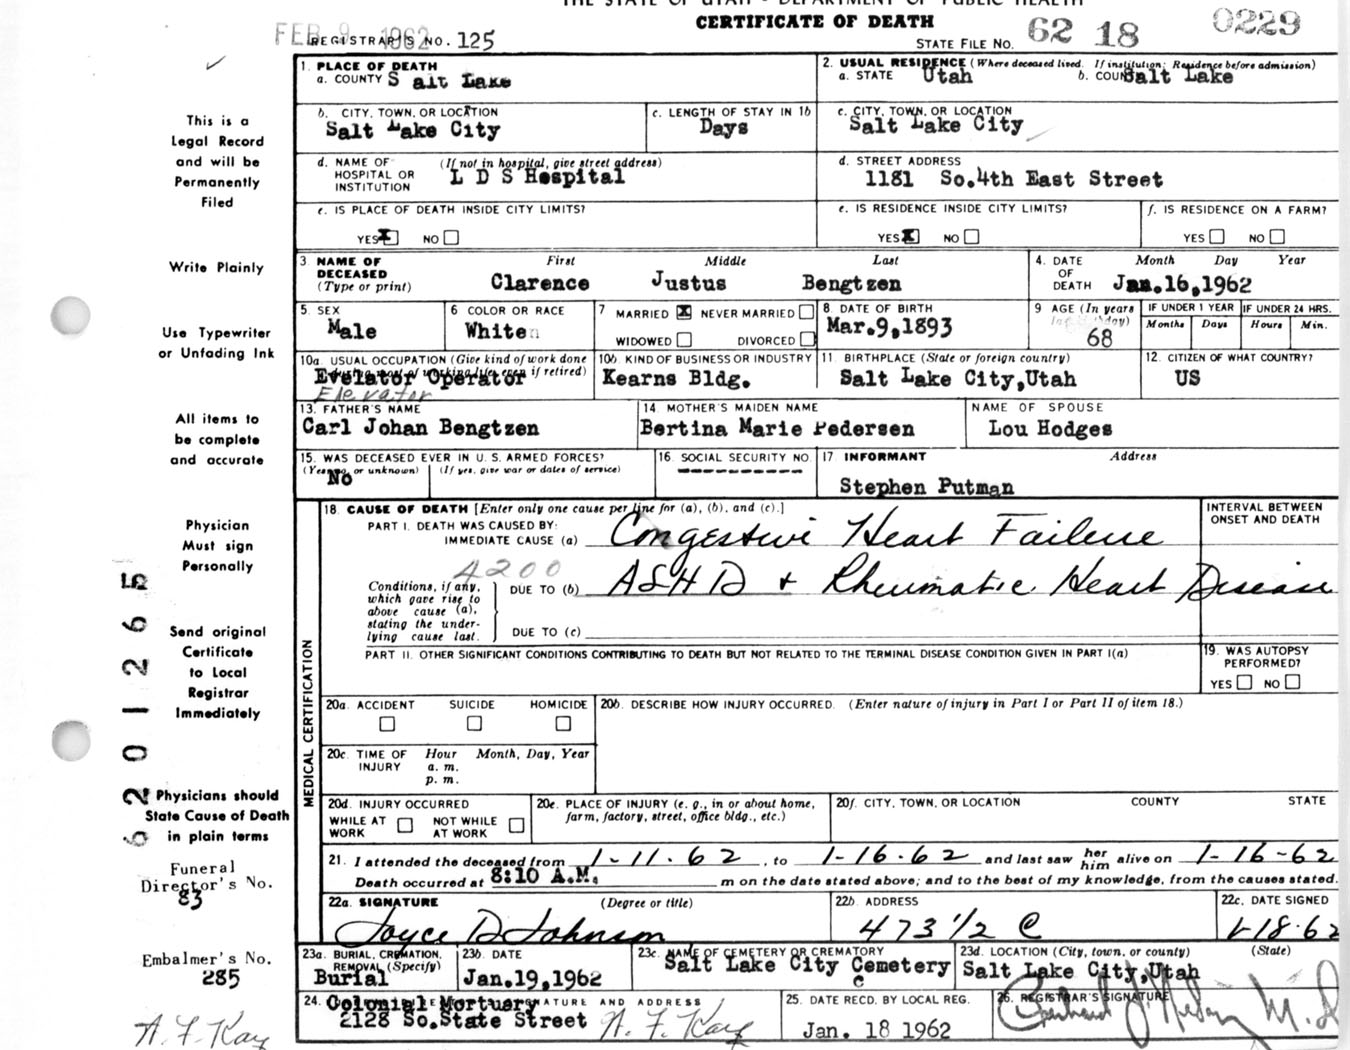 THE STATE OF UTAH - DEPARTMENT OF PUBLIC HEALTH
CERTIFICATE OF DEATH
FEB 9 1962 REGISTRAR'S NO. 125
STATE FILE NO. 62 18 0229
1. PLACE OF DEATH
a. COUNTY S alt Lake
2. USUAL RESIDENCE (Where deceased lived. If institution: Residence before admission)
a. STATE Utah b. COUNTY Salt Lake
b. CITY, TOWN, OR LOCATION
Salt Lake City
c. LENGTH OF STAY IN 1b
Days
c. CITY, TOWN, OR LOCATION
Salt Lake City
d. NAME OF HOSPITAL OR INSTITUTION (If not in hospital, give street address)
L D S Hospital
d. STREET ADDRESS
1181 So.4th East Street
e. IS PLACE OF DEATH INSIDE CITY LIMITS?
YES X NO
e. IS RESIDENCE INSIDE CITY LIMITS?
YES X NO
f. IS RESIDENCE ON A FARM?
YES NO
3. NAME OF DECEASED (Type or print)
First Middle Last
Clarence Justus Bengtzen
4. DATE OF DEATH
Month Day Year
Jan.16,1962
5. SEX
Male
6 COLOR OR RACE
White
7 MARRIED X NEVER MARRIED
WIDOWED DIVORCED
8. DATE OF BIRTH
Mar.9,1893
9 AGE (In years last birthday)
68
IF UNDER 1 YEAR
Months Days
IF UNDER 24 HRS.
Hours Min.
10a. USUAL OCCUPATION (Give kind of work done during most of working life, even if retired)
Evelator Operator
Elevator
10b. KIND OF BUSINESS OR INDUSTRY
Kearns Bldg.
11. BIRTHPLACE (State or foreign country)
Salt Lake City,Utah
12. CITIZEN OF WHAT COUNTRY?
US
13. FATHER'S NAME
Carl Johan Bengtzen
14. MOTHER'S MAIDEN NAME
Bertina Marie Pedersen
NAME OF SPOUSE
Lou Hodges
15. WAS DECEASED EVER IN U. S. ARMED FORCES?
(Yes, no, or unknown) (If yes, give war or dates of service)
No
16. SOCIAL SECURITY NO.
------------
17. INFORMANT Address
Stephen Putman
MEDICAL CERTIFICATION
18. CAUSE OF DEATH [Enter only one cause per line for (a), (b), and (c).]
PART I. DEATH WAS CAUSED BY:
IMMEDIATE CAUSE (a) Congestive Heart Failure
INTERVAL BETWEEN ONSET AND DEATH
4200
Conditions, if any, which gave rise to above cause (a), stating the underlying cause last.
DUE TO (b) ASHD + Rheumatic Heart Disease
DUE TO (c)
PART II. OTHER SIGNIFICANT CONDITIONS CONTRIBUTING TO DEATH BUT NOT RELATED TO THE TERMINAL DISEASE CONDITION GIVEN IN PART I(a)
19. WAS AUTOPSY PERFORMED?
YES NO
20a. ACCIDENT SUICIDE HOMICIDE
20b. DESCRIBE HOW INJURY OCCURRED. (Enter nature of injury in Part I or Part II of item 18.)
20c. TIME OF INJURY Hour Month, Day, Year
a. m.
p. m.
20d. INJURY OCCURRED
WHILE AT WORK NOT WHILE AT WORK
20e. PLACE OF INJURY (e. g., in or about home, farm, factory, street, office bldg., etc.)
20f. CITY, TOWN, OR LOCATION COUNTY STATE
21. I attended the deceased from 1-11-62, to 1-16-62 and last saw her him alive on 1-16-62
Death occurred at 8:10 A.M. m on the date stated above; and to the best of my knowledge, from the causes stated.
22a. SIGNATURE (Degree or title)
Joyce D Johnson
22b. ADDRESS
473 1/2 C
22c. DATE SIGNED
1-18-62
23a. BURIAL, CREMATION, REMOVAL (Specify)
Burial
23b. DATE
Jan.19,1962
23c. NAME OF CEMETERY OR CREMATORY
Salt Lake City Cemetery
c
23d. LOCATION (City, town, or county) (State)
Salt Lake City,Utah
24. SIGNATURE AND ADDRESS
Colonial Mortuary
2128 So.State Street A. F. Kay
25. DATE RECD. BY LOCAL REG.
Jan. 18 1962
26. REGISTRAR'S SIGNATURE
M.D.
This is a
Legal Record
and will be
Permanently
Filed
Write Plainly
Use Typewriter
or Unfading Ink
All items to
be complete
and accurate
Physician
Must sign
Personally
Send original
Certificate
to Local
Registrar
Immediately
Physicians should
State Cause of Death
in plain terms
Funeral
Director's No.
83
Embalmer's No.
285
A. F. Kay